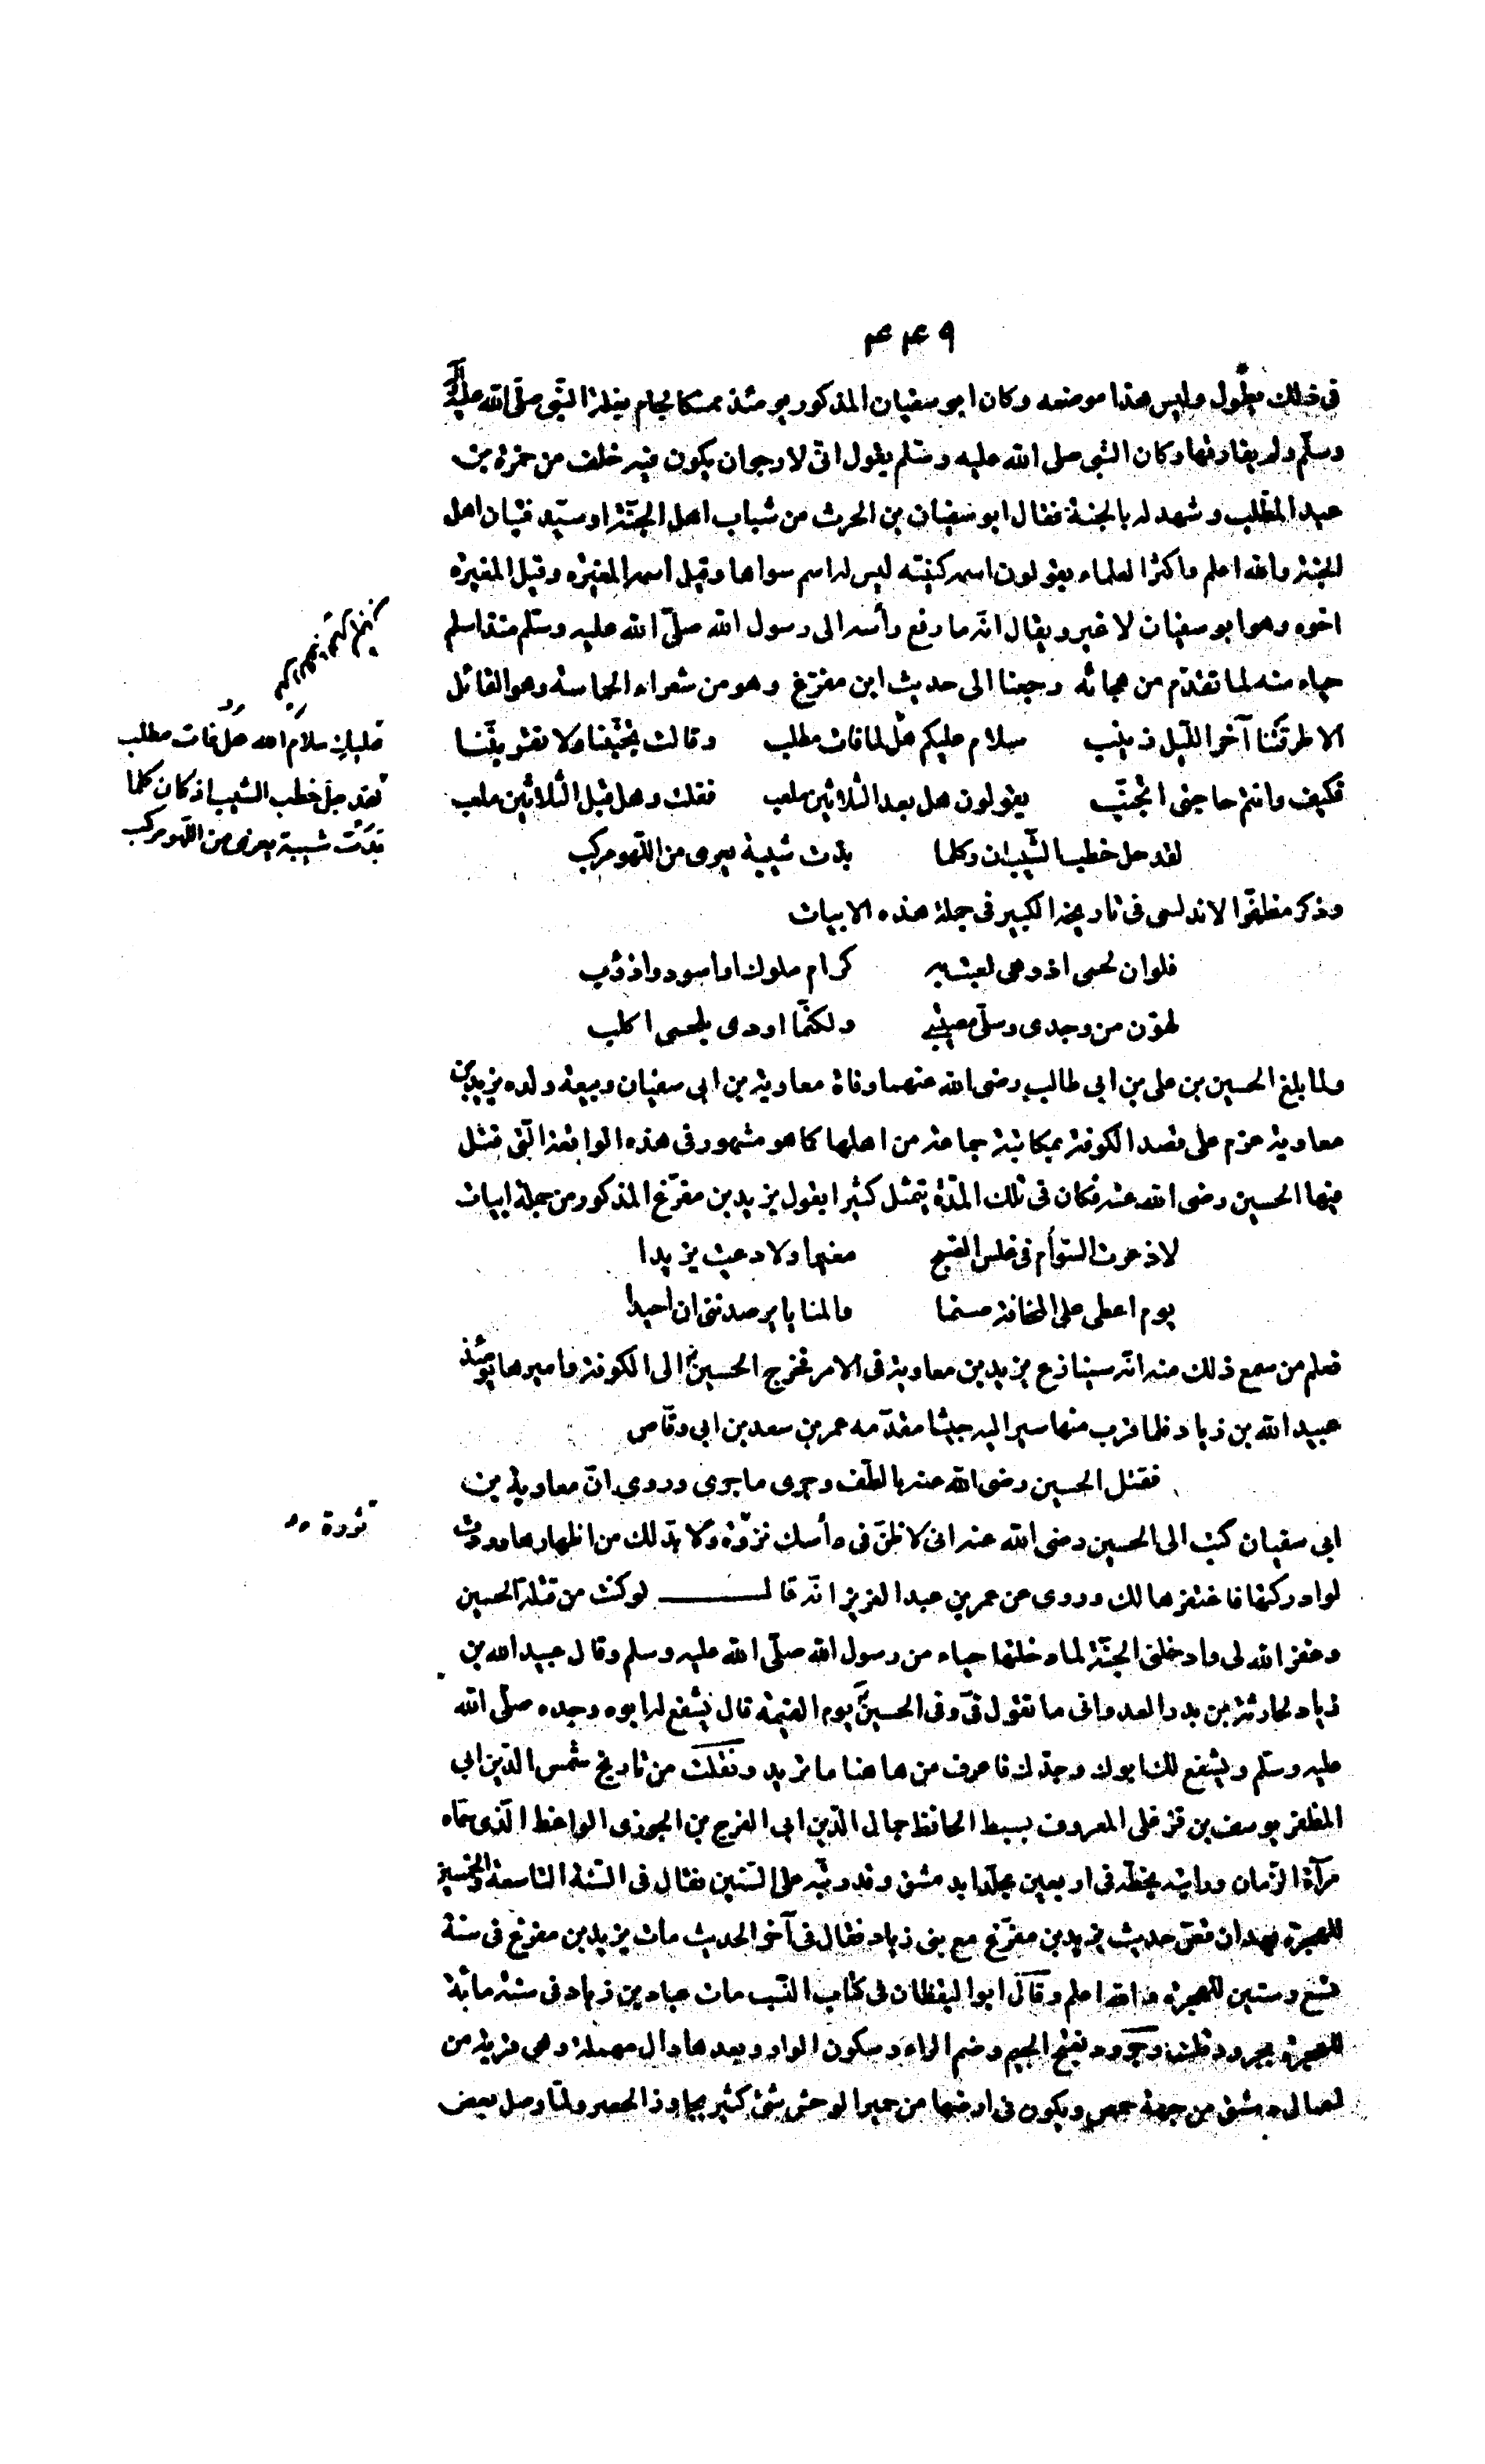 ۴۴۹
فى ذلك مطول وليس هذا موضعه وكان ابو سفيان المذكور يومئذ ممسكا لجام بغلة النبى صلى الله عليه وآله
وسلم ولم يفارقها وكان النبى صلى الله عليه وسلم يقول انى لارجو ان يكون فيه خلف من حمزة بن
عبد المطلب وشهد له بالجنة فقال ابو سفيان بن الحرث من شباب اهل الجنة او سيد فتيان اهل
الجنة والله اعلم واكثر العلماء يقولون اسمه كنيته ليس له اسم سواها وقيل اسمه المغيرة وقيل المغيرة
اخوه وهو ابو سفيان لا غير ويقال انه ما رفع رأسه الى رسول الله صلى الله عليه وسلم منذ اسلم
حياء منه لما تقدم من هجائه رجعنا الى حديث ابن مفرغ وهو من شعراء الحماسة وهو القائل
الا طرقتنا آخر الليل زينب سلام عليكم هل لما فات مطلب وقالت تجنبنا ولا تقربننا
فكيف وانتم حاجتى اتجنب يقولون هل بعد الثلاثين ملعب فقلت وهل قبل الثلاثين ملعب
لقد جل خطب الشيب ان وكلما بدت شيبة يعرى من اللهو مركب
عليك سلام الله هل فات مطلب
لقد جل خطب الشيب اذ كان كلما
بَدَت شيبة يعرى من اللهو مركب
وذكر مظفر الاندلسى فى تاريخه الكبير فى جملة هذه الابيات
فلو ان لحمى اذ وهى لعبت به كرام ملوك او اسود واذؤب
لهون من وجدى وسلى مصيبتى ولكنما اودى بلحمى اكلب
ولما بلغ الحسين بن على بن ابى طالب رضى الله عنهما وفاة معاوية بن ابى سفيان وبيعة ولده يزيد بن
معاوية عزم على قصد الكوفة بمكاتبة جماعة من اهلها كما هو مشهور فى هذه الواقعة التى قتل
فيها الحسين رضى الله عنه فكان فى تلك المدة يتمثل كثيرا بقول يزيد بن مفرغ المذكور من جملة ابيات
لا ذعرت السوام فى غلس الصبح مغيرا ولا دعيت يزيدا
يوم اعطى على المخافة ضيما والمنايا يرصدننى ان احيدا
فعلم من سمع ذلك منه انه سينازع يزيد بن معاوية فى الامر فخرج الحسين الى الكوفة واميرها يومئذ
عبيد الله بن زياد فلما قرب منها سير اليه جيشا مقدمه عمر بن سعد بن ابى وقاص
فقتل الحسين رضى الله عنه بالطف وجرى ما جرى وروى ان معاوية بن
ابى سفيان كتب الى الحسين رضى الله عنه انى لاظن فى رأسك نزوة ولا بد لك من اظهارها ووددت
ثورة
لو ادركتها فاغتفرها لك وروى عن عمر بن عبد العزيز انه قال لو كنت من قتلة الحسين
وغفر الله لى وادخلنى الجنة لما دخلتها حياء من رسول الله صلى الله عليه وسلم وقال عبيد الله بن
زياد لحارثة بن بدر العدوانى ما تقول فى وفى الحسين يوم القيمة قال يشفع له ابوه وجده صلى الله
عليه وسلم ويشفع لك ابوك وجدك فاعرف من هاهنا ما تريد ونقلت من تاريخ شمس الدين ابى
المظفر يوسف بن قزغلى المعروف بسبط الحافظ جمال الدين ابى الفرج بن الجوزى الواعظ الذى سماه
مرآة الزمان ورايته بخطه فى اربعين مجلدا بدمشق وقد رتبه على السنين فقال فى السنة التاسعة والخمسين
للهجرة بعد ان قص حديث يزيد بن مفرغ مع بنى زياد فقال فى آخر الحديث مات يزيد بن مفرغ فى سنة
تسع وستين للهجرة والله اعلم وقال ابو اليقظان فى كتاب النسب مات عباد بن زياد فى سنة مائة
للهجرة بجرود قلت وجرود بفتح الجيم وضم الراء وسكون الواو وبعدها دال مهملة وهى قرية من
اعمال دمشق من جهة حمص ويكون فى ارضها من حمير الوحش شئ كثير يجاوز الحصر ولما وصل بعض